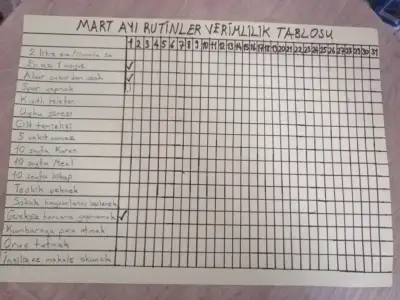 MART AYI RUTİNLER VERİMLİLİK TABLOSU
1 2 3 4 5 6 7 8 9 10 11 12 13 14 15 16 17 18 19 20 21 22 23 24 25 26 27 28 29 30 31
2 litre su
En az 1 meyve
Abur cuburdan uzak
Spor yapmak
Kısıtlı telefon
Uyku süresi
Cilt temizliği
5 vakit namaz
10 sayfa Kuran
10 sayfa Meal
10 sayfa kitap
Tesbih çekmek
Sokak hayvanlarını beslemek
Gereksiz harcama yapmamak
Kumbaraya para atmak
Oruç tutmak
İngilizce makale okumak